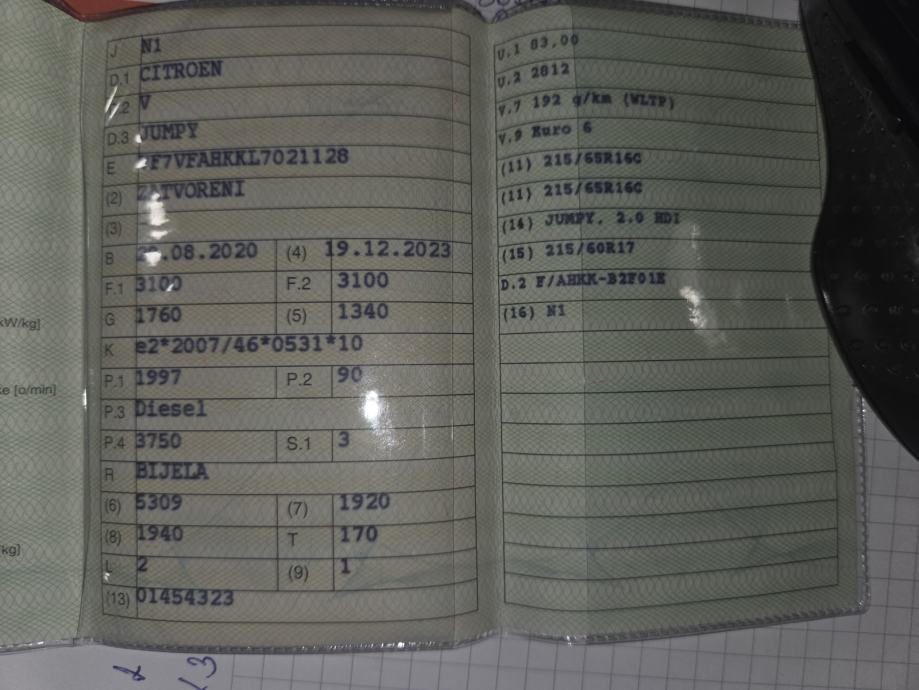 J N1
D.1 CITROEN
.2 V
D.3 JUMPY
E F7VFAHKKL7021128
(2) ZATVORENI
(3)
B .08.2020 (4) 19.12.2023
F.1 3100 F.2 3100
G 1760 (5) 1340
K e2*2007/46*0531*10
P.1 1997 P.2 90
P.3 Diesel
P.4 3750 S.1 3
R BIJELA
(6) 5309 (7) 1920
(8) 1940 T 170
L 2 (9) 1
(13) 01454323
U.1 83,00
U.2 2812
V.7 192 g/km (WLTP)
V.9 Euro 6
(11) 215/65R16C
(11) 215/65R16C
(14) JUMPY, 2.0 HDI
(15) 215/60R17
D.2 F/AHKK-B2F01E
(16) N1
kW/kg]
[o/min]
kg]